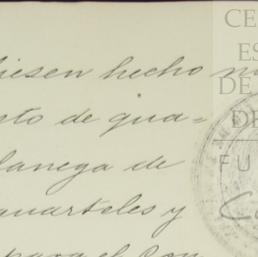 iesen hecho
to de gua=
lanega de
uarteles y
para el
CE
ES
DE
DE
FU